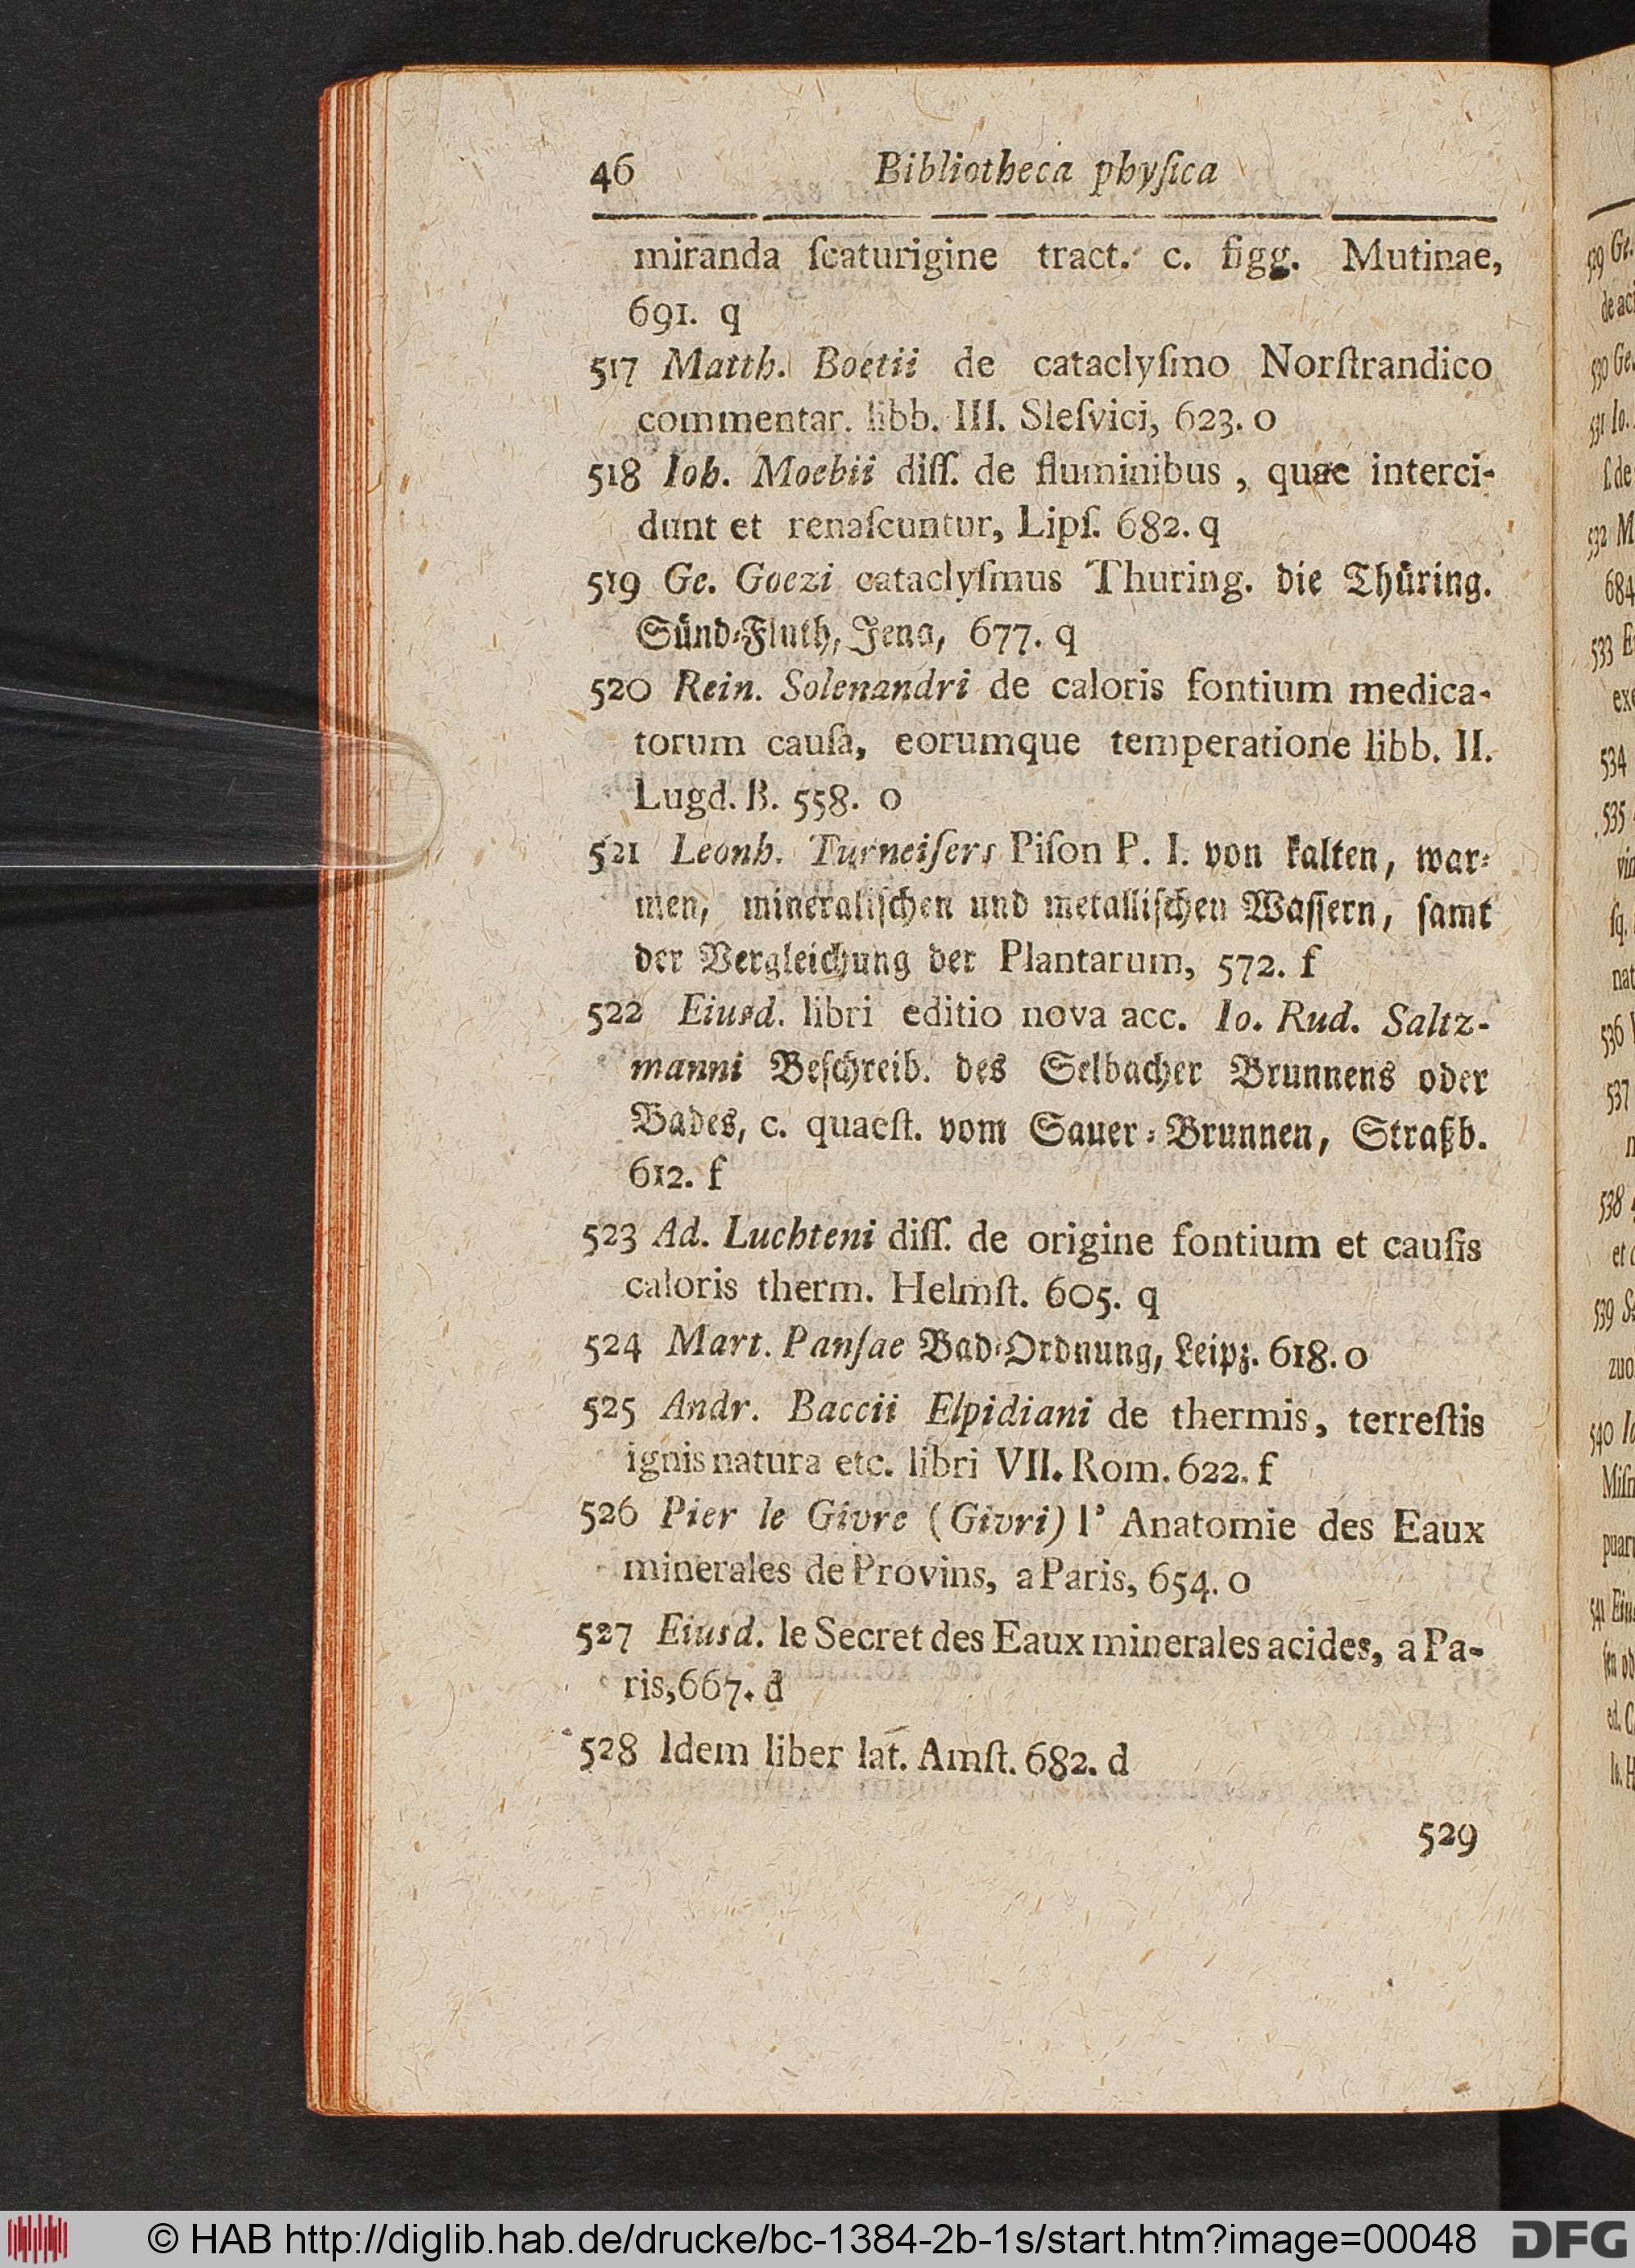 46 Bibliotheca phyſica
miranda ſcaturigine tract. c. figg. Mutinae,
691. q
517 Matth. Boetii de cataclyſmo Norſtrandico
commentar. libb. III. Sleſvici, 623. o
518 Ioh. Moebii diſſ. de fluminibus, quae interci-
dunt et renaſcuntur, Lipſ. 682. q
519 Ge. Goezi cataclyſmus Thuring. die Thüring.
Sünd-Fluth, Jena, 677. q
520 Rein. Solenandri de caloris fontium medica-
torum cauſa, eorumque temperatione libb. II.
Lugd. B. 558. o
521 Leonh. Turneiſers Piſon P. I. von kalten, war-
men, mineraliſchen und metalliſchen Waſſern, ſamt
der Vergleichung der Plantarum, 572. f
522 Eiusd. libri editio nova acc. Io. Rud. Saltz-
manni Beſchreib. des Selbacher Brunnens oder
Bades, c. quaeſt. vom Sauer-Brunnen, Straßb.
612. f
523 Ad. Luchteni diſſ. de origine fontium et cauſis
caloris therm. Helmſt. 605. q
524 Mart. Panſae Bad-Ordnung, Leipz. 618. o
525 Andr. Baccii Elpidiani de thermis, terreſtis
ignis natura etc. libri VII. Rom. 622. f
526 Pier le Givre (Givri) l' Anatomie des Eaux
minerales de Provins, a Paris, 654. o
527 Eiusd. le Secret des Eaux minerales acides, a Pa-
ris, 667. d
528 Idem liber lat. Amſt. 682. d
529
© HAB http://diglib.hab.de/drucke/bc-1384-2b-1s/start.htm?image=00048
DFG